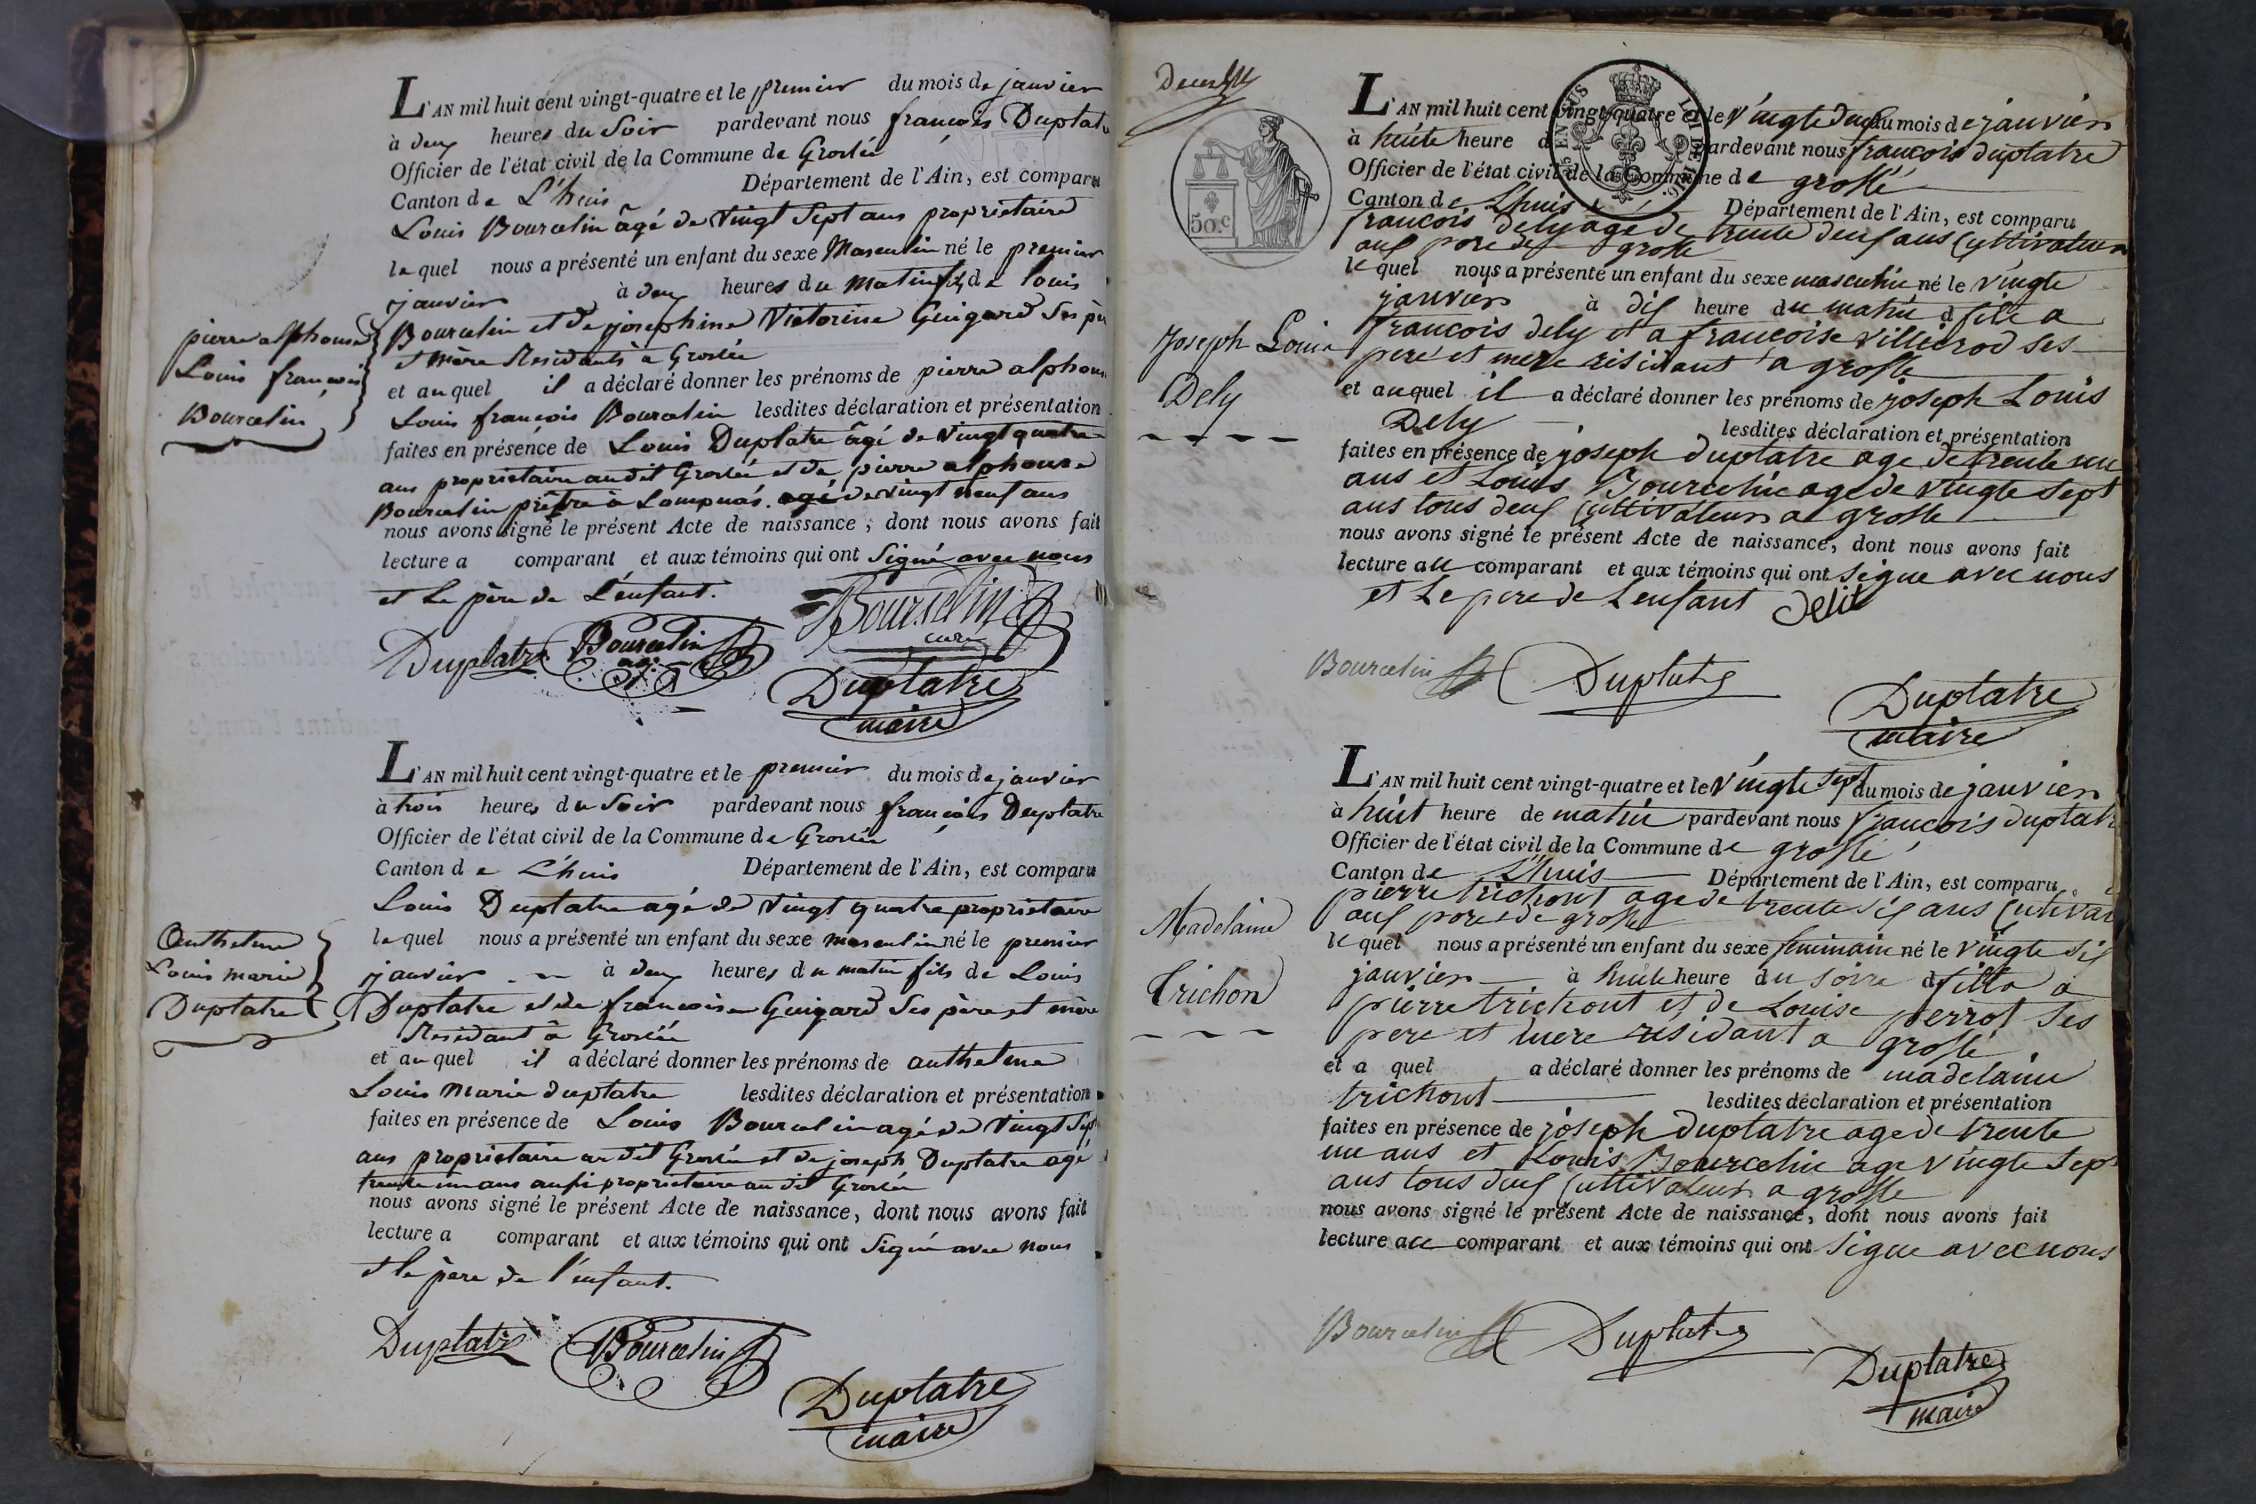 L'AN mil huit cent vingt-quatre et le premier du mois de janvier
à deux heures du Soir pardevant nous françois Duplatre
Officier de l'état civil de la Commune de Groslée
Canton de L'huis Département de l'Ain, est comparu
Louis Bourcelin âgé de vingt Sept ans proprietaire
lequel nous a présenté un enfant du sexe Masculin né le premier
janvier à deux heures du matin fils de louis
Bourcelin et de josephine Victorine Guigard Ses père
et mère Residants a Groslée
et auquel il a déclaré donner les prénoms de pierre alphonse
Louis françois Bourcelin lesdites déclaration et présentation
faites en présence de Louis Duplatre âgé de vingt quatre
ans proprietaire audit Groslée et de pierre alphonse
Bourcelin prêtre à Lompnas. agé de vingt neuf ans
nous avons signé le présent Acte de naissance, dont nous avons fait
lecture a comparant et aux témoins qui ont Signé avec nous
et Le père de L'enfant.
Bourcelin
curé
Duplatre Bourcelin
Duplatre
maire
pierre alphonse
Louis françois
Bourcelin
L'AN mil huit cent vingt-quatre et le premier du mois de janvier
à trois heures du Soir pardevant nous françois Duplatre
Officier de l'état civil de la Commune de Groslée
Canton de L'huis Département de l'Ain, est comparu
Louis Duplatre agé de vingt quatre proprietaire
lequel nous a présenté un enfant du sexe masculin né le premier
janvier à deux heures du matin fils de Louis
Duplatre et de francoise Guigard Ses père et mère
Residant à Groslée
et auquel il a déclaré donner les prénoms de anthelme
Louis Marie duplatre lesdites déclaration et présentation
faites en présence de Louis Bourcelin agé de vingt Sept
ans proprietaire audit Groslée et de joseph Duplatre agé
trente un ans aussi proprietaire au dit Groslée
nous avons signé le présent Acte de naissance, dont nous avons fait
lecture a comparant et aux témoins qui ont Signé avec nous
et le père de l'enfant.
Duplatre Bourcelin
Duplatre
maire
Anthelme
Louis marie
Duplatre
50.c
L'AN mil huit cent vingt-quatre et le vingte deux du mois de janvier
à huite heure d pardevant nous francois duplatre
Officier de l'état civil de la Commune de groslé
Canton de Lhuis Département de l'Ain, est comparu
francois dely agé de trente deux ans Cultivateur
lequel nous a présenté un enfant du sexe masculin né le vingte
janvier à dix heure du matin d fils a
francois dely et a francoise villierod ses
pere et mere residant a grosle
et auquel il a déclaré donner les prénoms de joseph Louis
Dely lesdites déclaration et présentation
faites en présence de joseph duplatre age de trente un
ans et Louis Bourcelin age de vingte sept
ans tous deux Cultivateur a grosle
nous avons signé le présent Acte de naissance, dont nous avons fait
lecture au comparant et aux témoins qui ont signe avec nous
et Le pere de Lenfant Delit
Bourcelin Duplatre
Duplatre
maire
Joseph Louis
Dely
L'AN mil huit cent vingt-quatre et le vingte sept du mois de janvier
à huit heure de matin pardevant nous francois duplatre
Officier de l'état civil de la Commune de groslé
Canton de Lhuis Département de l'Ain, est comparu
pierre trichont age de trente six ans Cultivat
lequel nous a présenté un enfant du sexe feminain né le vingte six
janvier à huite heure du soire d fille a
pierre trichont et de Louise perrot ses
pere et mere residant a groslé
et a quel a déclaré donner les prénoms de madelaine
trichont lesdites déclaration et présentation
faites en présence de joseph duplatre age de trente
un ans et Louis Bourcelin age vingte sept
ans tous deux Cultivateur a grosle
nous avons signé le présent Acte de naissance, dont nous avons fait
lecture au comparant et aux témoins qui ont signe avec nous
Bourcelin Duplatre
Duplatre
maire
Madelaine
Trichon